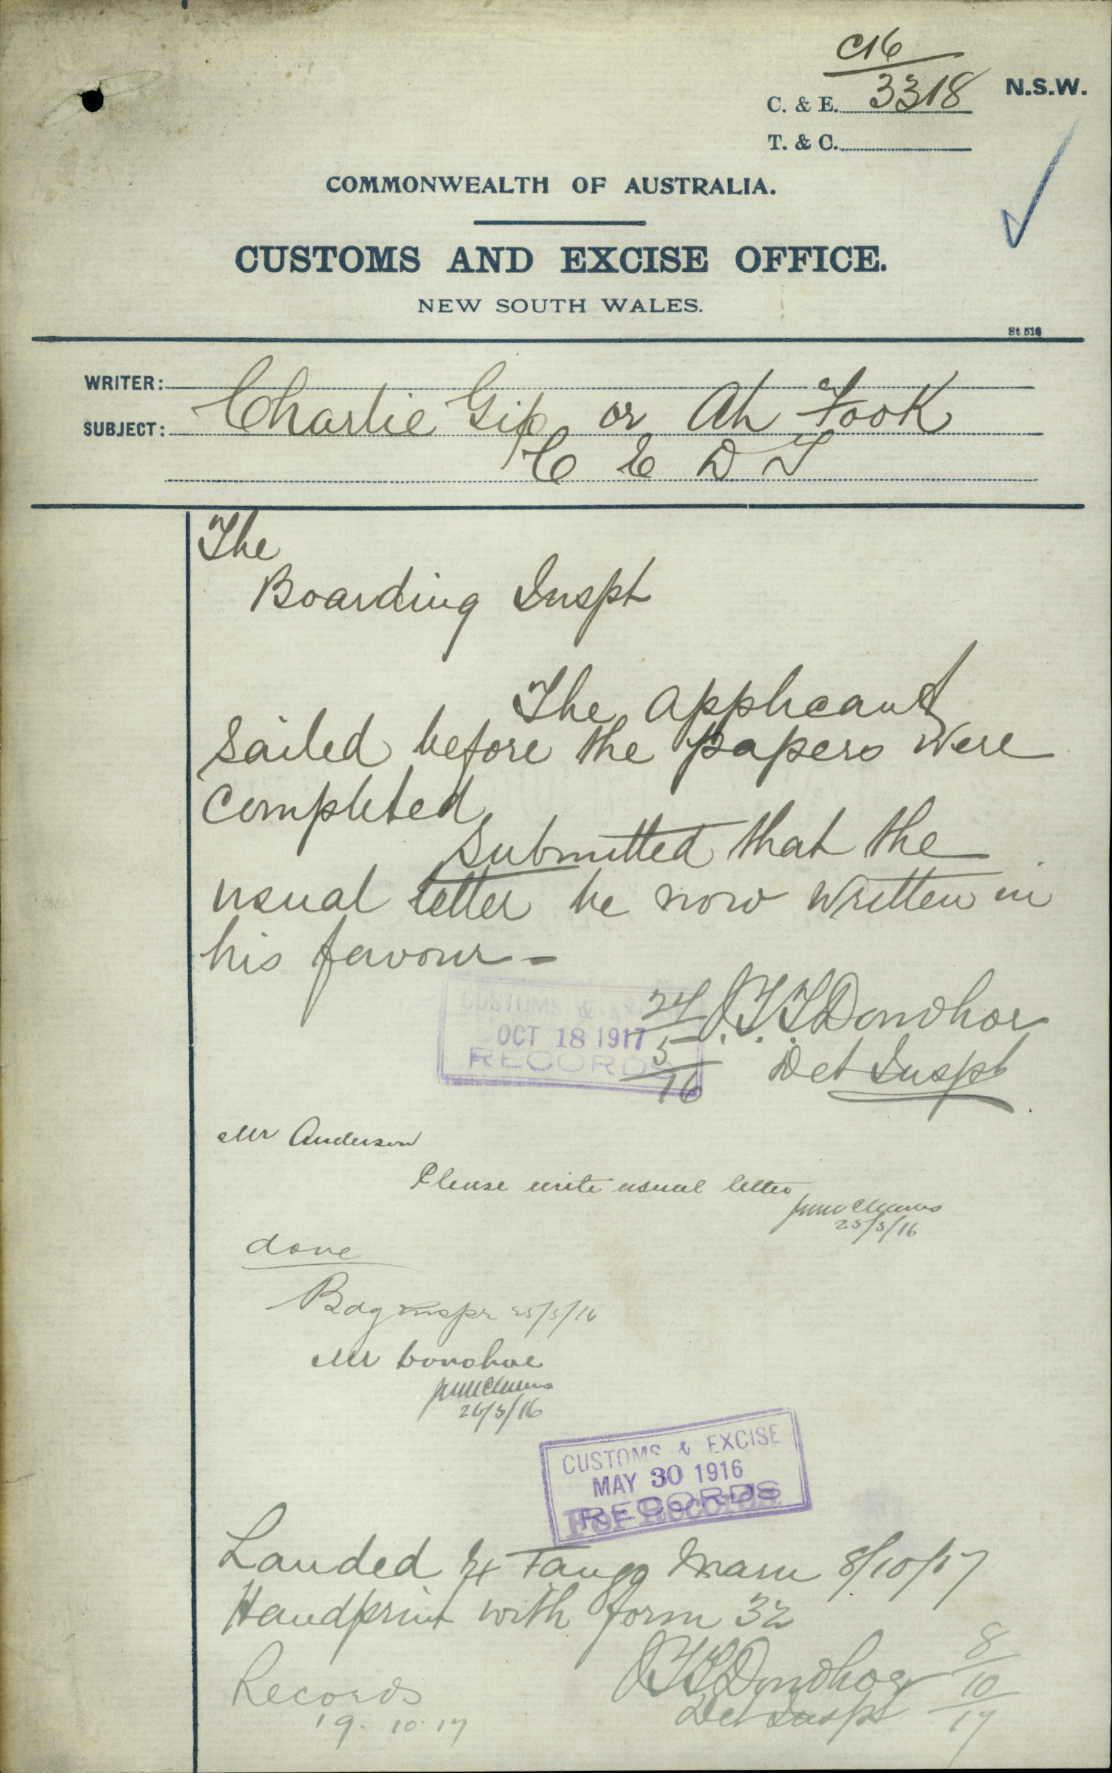 C16
C. & E. 3318 N.S.W.
T. & C.
COMMONWEALTH OF AUSTRALIA.
CUSTOMS AND EXCISE OFFICE.
NEW SOUTH WALES.
St. 516
WRITER:
SUBJECT: Charlie Gip or Ah Fook
C E D T
The
Boarding Inspt
The applicant
sailed before the papers were
completed
Submitted that the
usual letter be now written in
his favour -
CUSTOMS &
OCT 18 1917
RECORDS
24
5
16
J.T.T. Donohoe
Det Inspt
Mr Anderson
Please write usual letter
25/5/16
done
Bdg Inspr 25/5/16
Mr Donohoe
26/5/16
CUSTOMS & EXCISE
MAY 30 1916
RECORDS
Landed Ex Tango Maru 8/10/17
Handprint with form 32
J.T.T. Donohoe 8
Det Inspt 10
17
Records
19.10.17